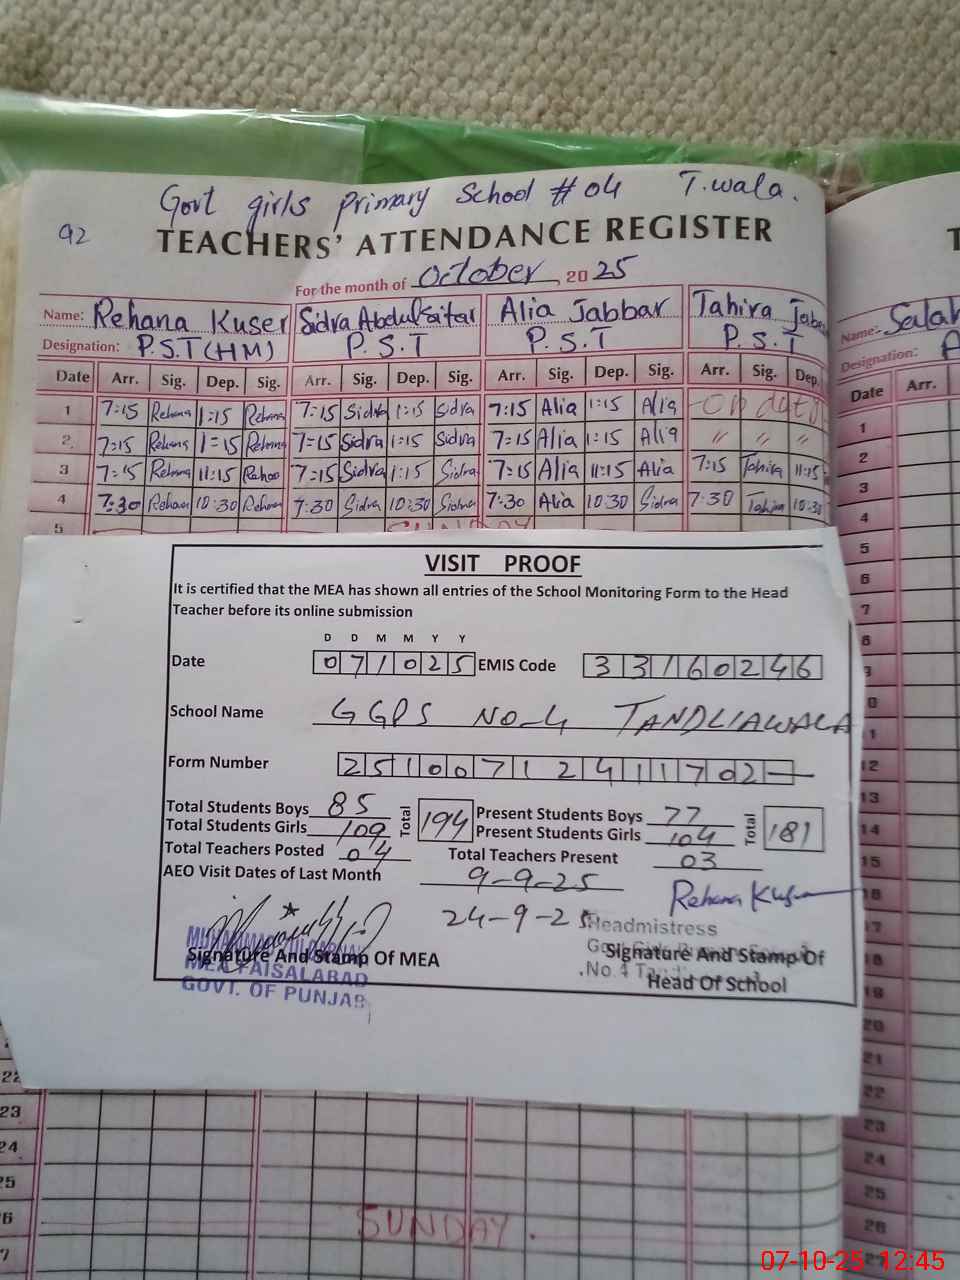 Govt girls primary School # 04 T.wala.
92
TEACHERS' ATTENDANCE REGISTER
For the month of October 2025
Name: Rehana Kuser Sidra Abdulsitar Alia Jabbar Tahira
Designation: P.S.T (HM) P.S.T P.S.T P.S.T
Date Arr. Sig. Dep. Sig. Arr. Sig. Dep. Sig. Arr. Sig. Dep. Sig. Arr. Sig. Dep.
1 7:15 Rehana 1:15 Rehana 7:15 Sidra 1:15 Sidra 7:15 Alia 1:15 Alia
2 7:15 Rehana 1=15 Rehana 7=15 Sidra 1:15 Sidra 7=15 Alia 1:15 Alia " " "
3 7:15 Rehana 11:15 7:15 Sidra 1:15 Sidra 7:15 Alia 11:15 Alia 7:15 Tahira 11:15
4 7:30 Rehana 10:30 Rehana 7:30 Sidra 10:30 Sidra 7:30 Alia 10:30 Sidra 7:30 Tahira 10:30
5 SUNDAY
VISIT PROOF
It is certified that the MEA has shown all entries of the School Monitoring Form to the Head
Teacher before its online submission
D D M M Y Y
Date 071025 EMIS Code 33160246
School Name GGPS No-4 TANDLIAWALA
Form Number 25100712411702
Total Students Boys 85 Total 194 Present Students Boys 77 Total 181
Total Students Girls 109 Present Students Girls 104
Total Teachers Posted 04 Total Teachers Present 03
AEO Visit Dates of Last Month 9-9-25
24-9-25
Rehana Kuser
Headmistress
No.4
Signature And Stamp Of MEA
MEA FAISALABAD
GOVT. OF PUNJAB
Signature And Stamp Of
Head Of School
22
23
24
25
26 SUNDAY.
27
Name:
Designation:
Date Arr.
1
2
3
4
5
6
7
8
9
10
11
12
13
14
15
16
17
18
19
20
21
22
23
24
25
26
27
07-10-25 12:45